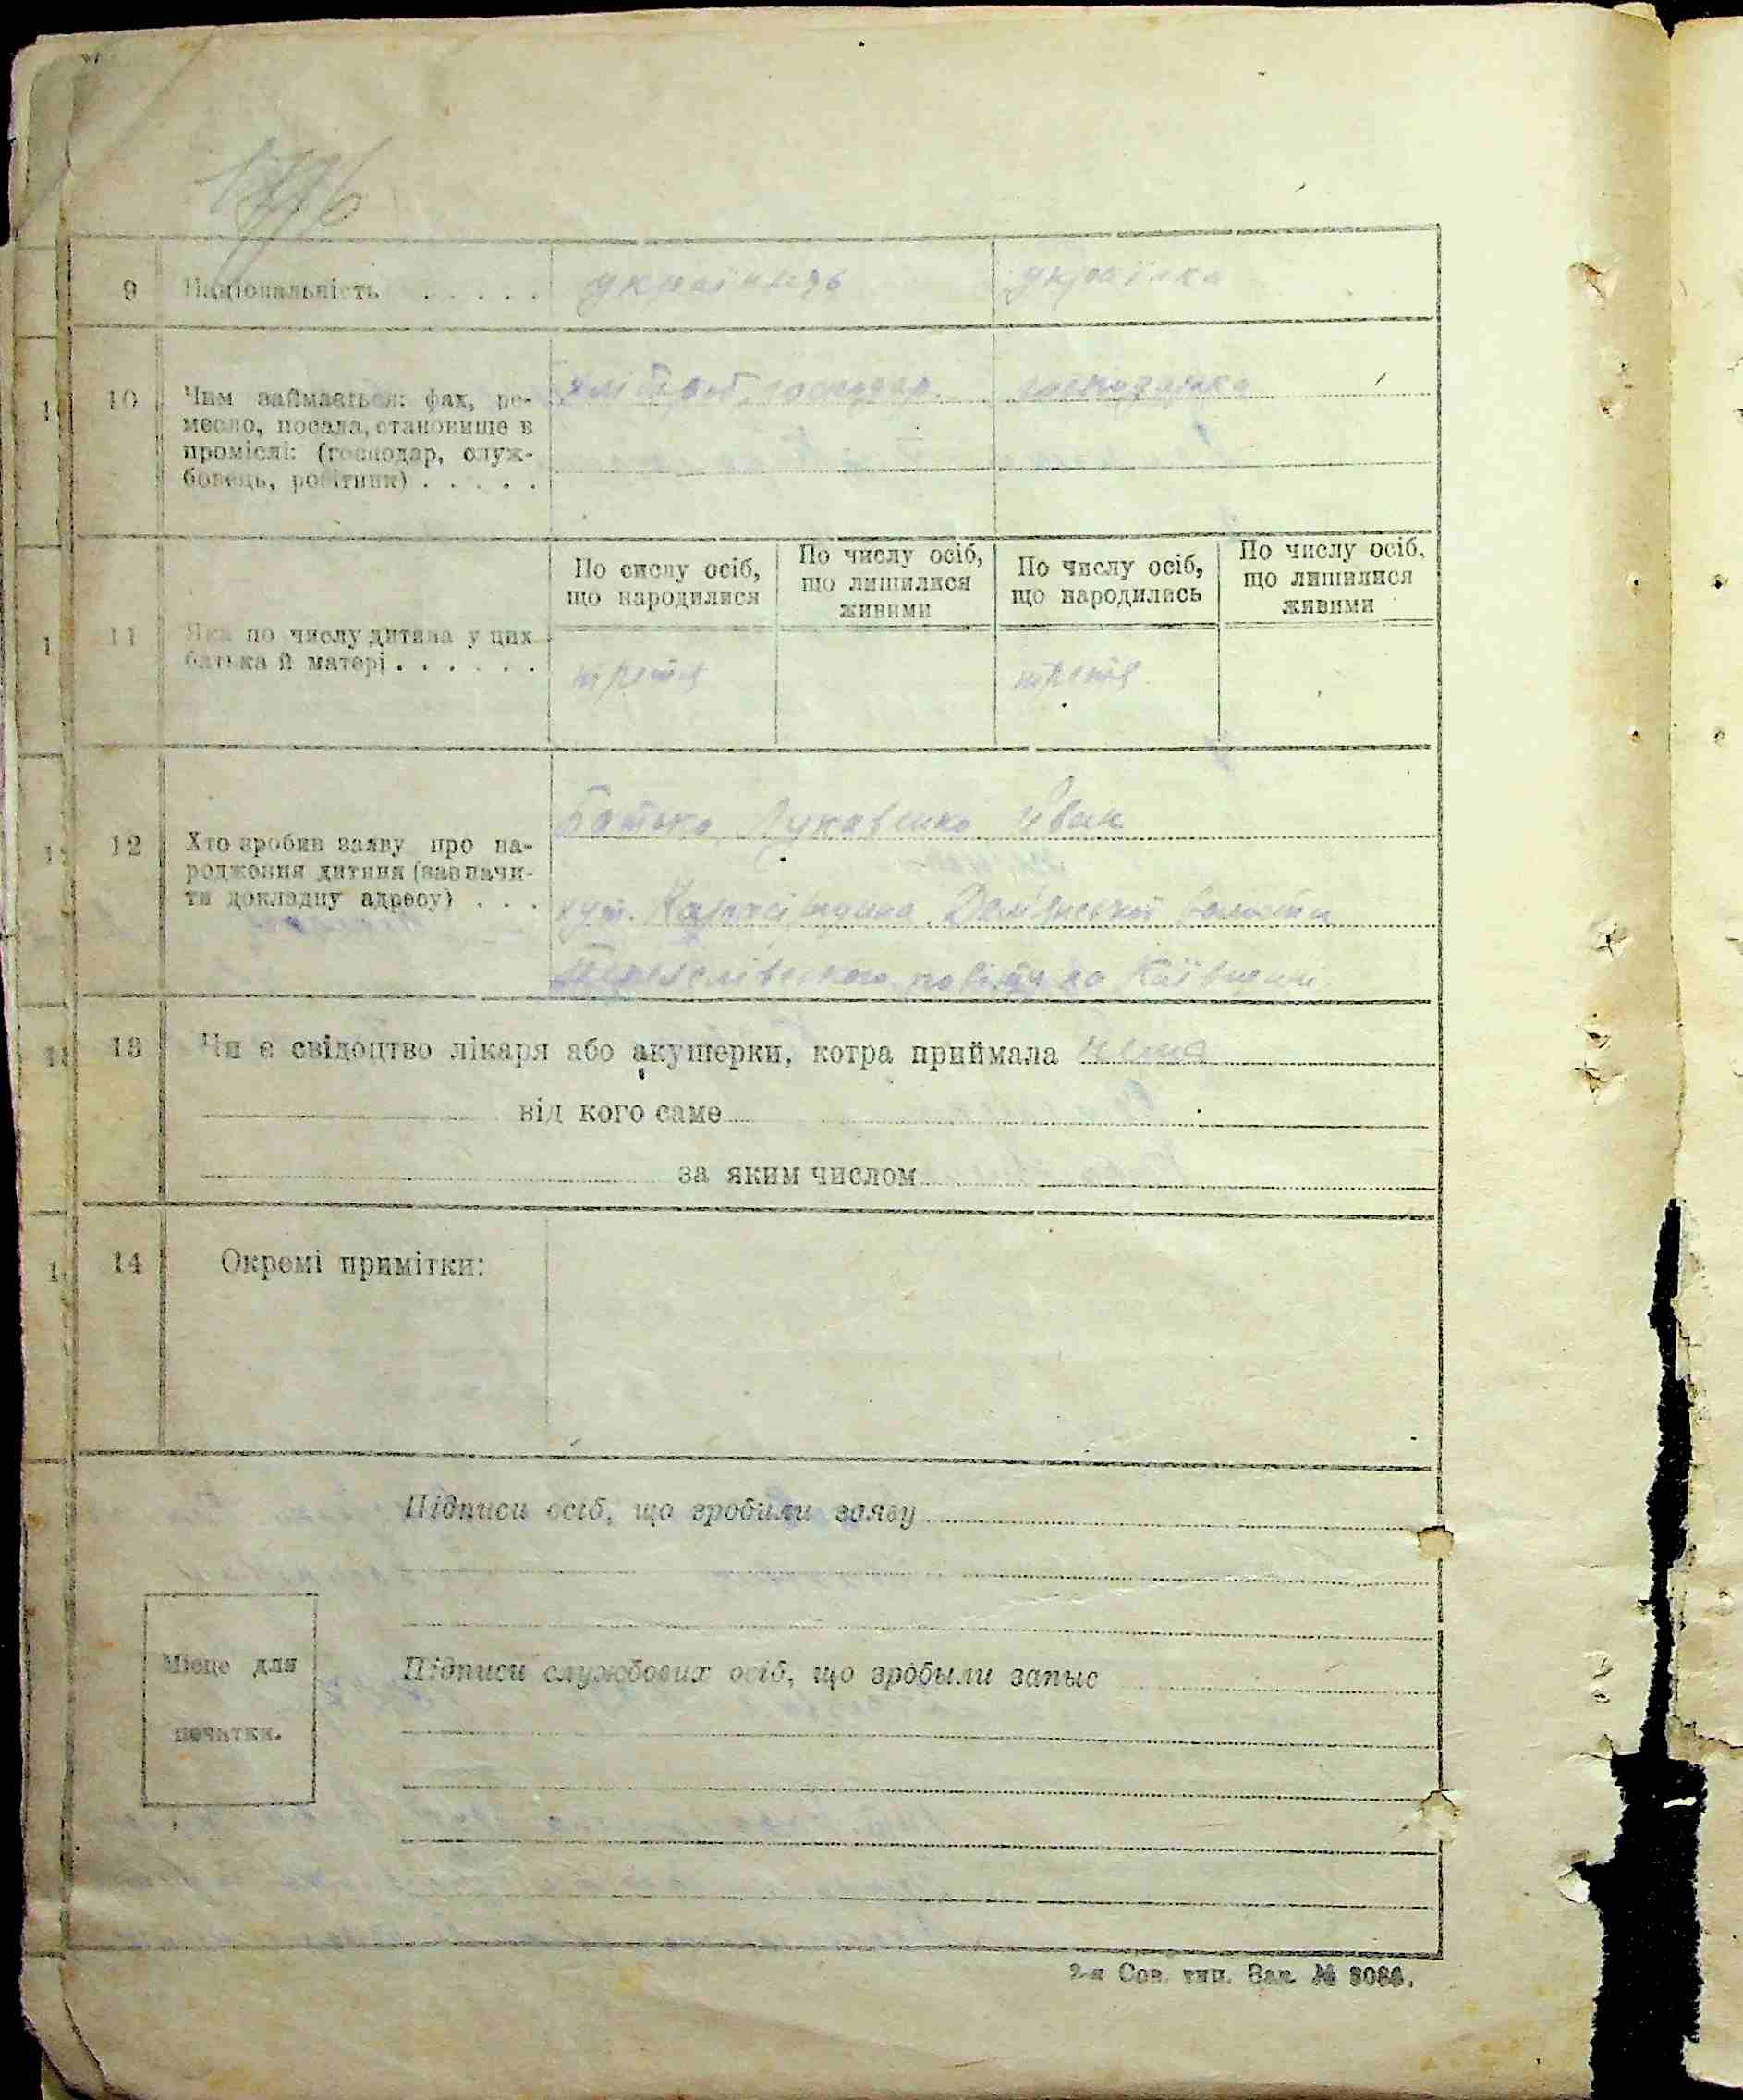 9 Національність . . . . . українець українка
10 Чим займається: фах, ре- хлібороб, господар. господарка
месло, посада, становище в
промислі: (господар, служ-
бовець, робітник) . . . . .
По сислу осіб, що народилися
По числу осіб, що лишилися живими
По числу осіб, що народились
По числу осіб, що лишилися живими
11 Яка по числу дитина у цих
батька й матері . . . . . . третя третя
Батько Лукавенко Іван
12 Хто зробив заяву про на-
родження дитини (зазначи-
ти докладну адресу) . . . хут. Дем'янської волости
повіту на Київщині
13 Чи є свідоцтво лікаря або акушерки, котра приймала нема
від кого саме
за яким числом
14 Окремі примітки:
Підписи осіб, що зробили заяву
Місце для
печатки.
Підписи службових осіб, що зробыли запыс
2-я Сов. тип. Зак. № 8086.